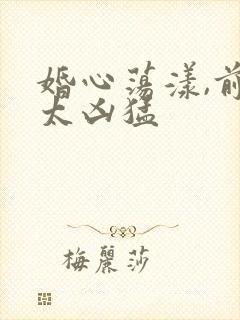 婚心荡漾,前
太凶猛
梅麗莎